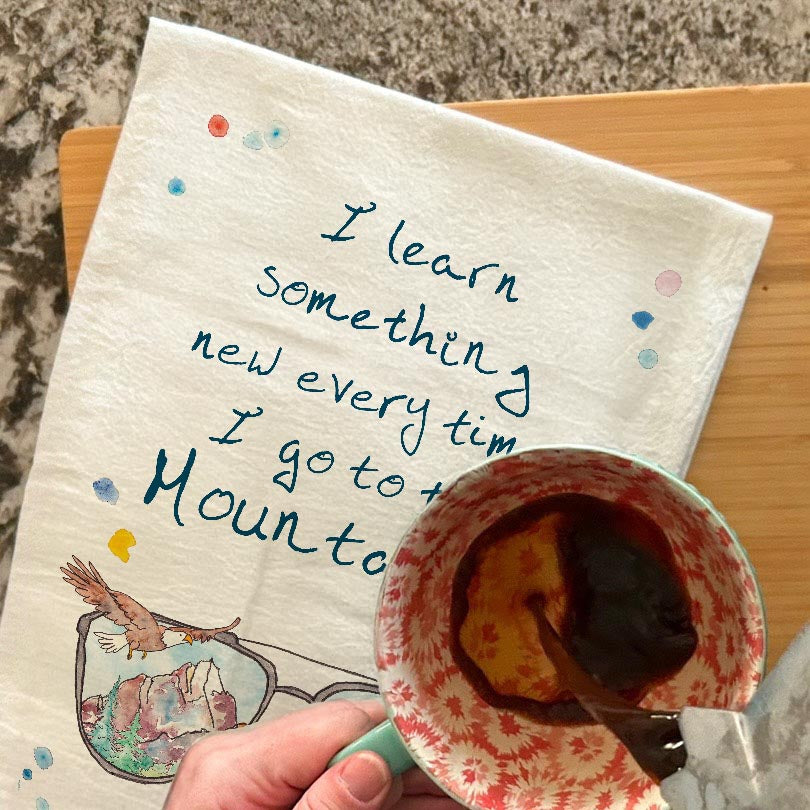 I learn
something
new every tim
I go to t
Mounta